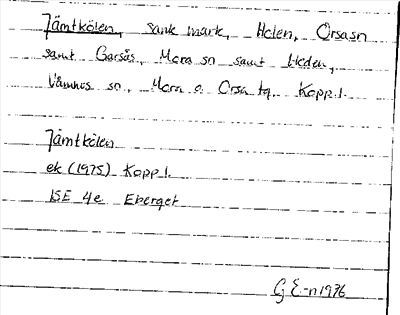 Jämtkölen, sank mark, Holen, Orsa sn
samt Garsås, Mora sn samt Heden,
Våmhus sn, Mora o. Orsa tg, Kopp. l.
Jämtkölen
ek (1975) Kopp l.
15E 4e Eberget
G E-n 1976